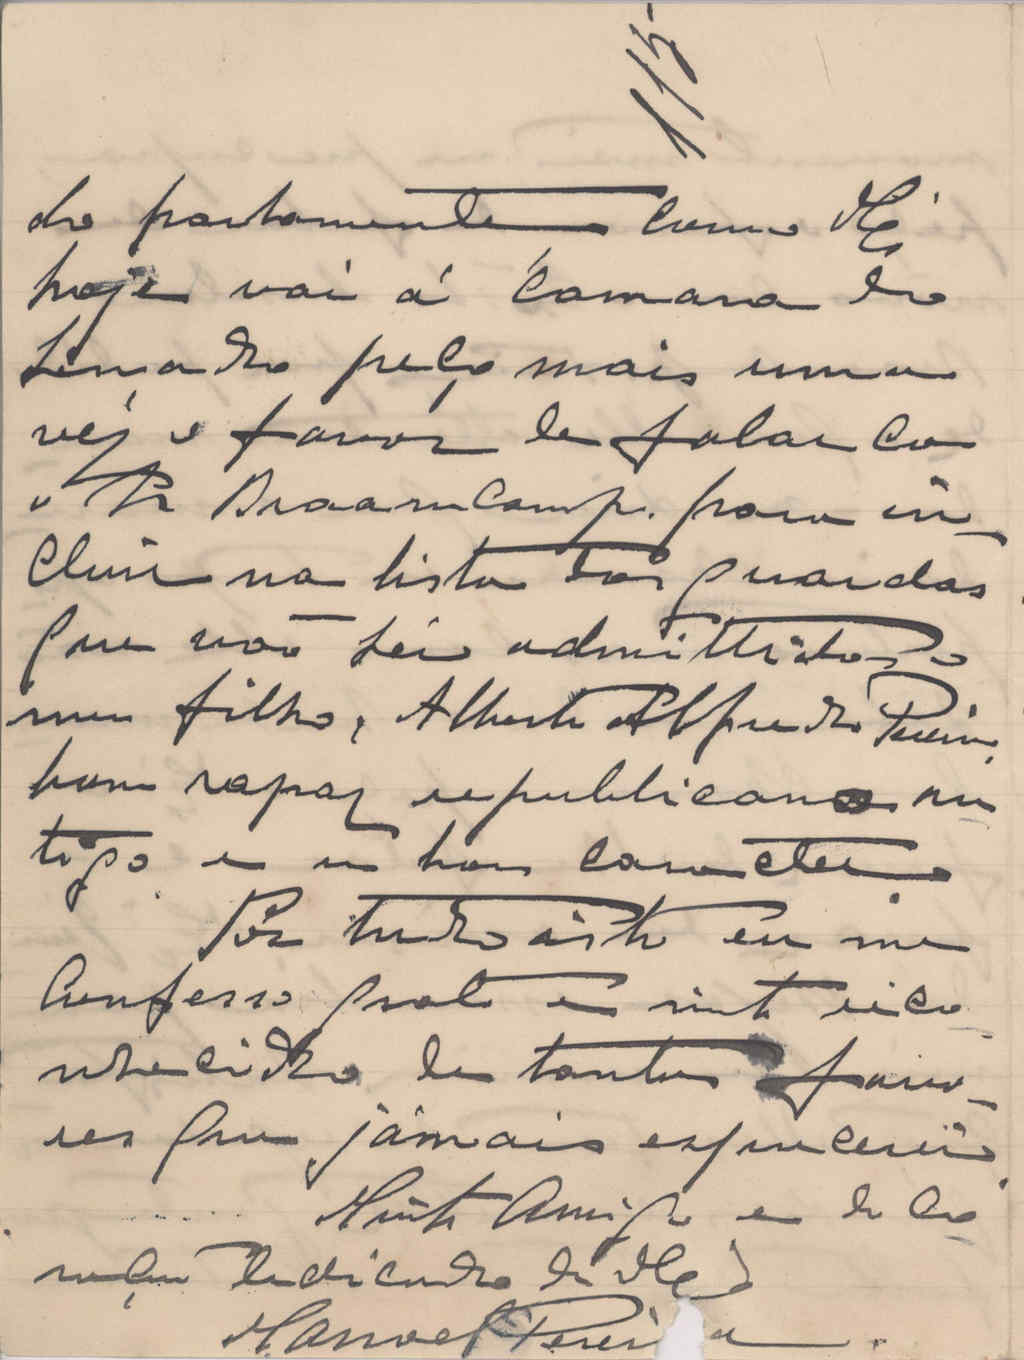 115
do portamente como V. Ex.
hoje vai á Camara do
Senado peço mais uma
vez o favor de falar co
o Sr Braamcamp. para in-
cluir na lista dos guardas
que vão sêr admittidos o
meu filho, Alberto Alfredo Pereira,
bom rapaz republicano an
tigo e um bom caracter
Por tudo isto eu me
confesso grato e mto reco
nhecido de tantos favo-
res que jámais esquecerei
Muito Amigo e do co
ração dedicado de V. Ex.
Manoel Pereira